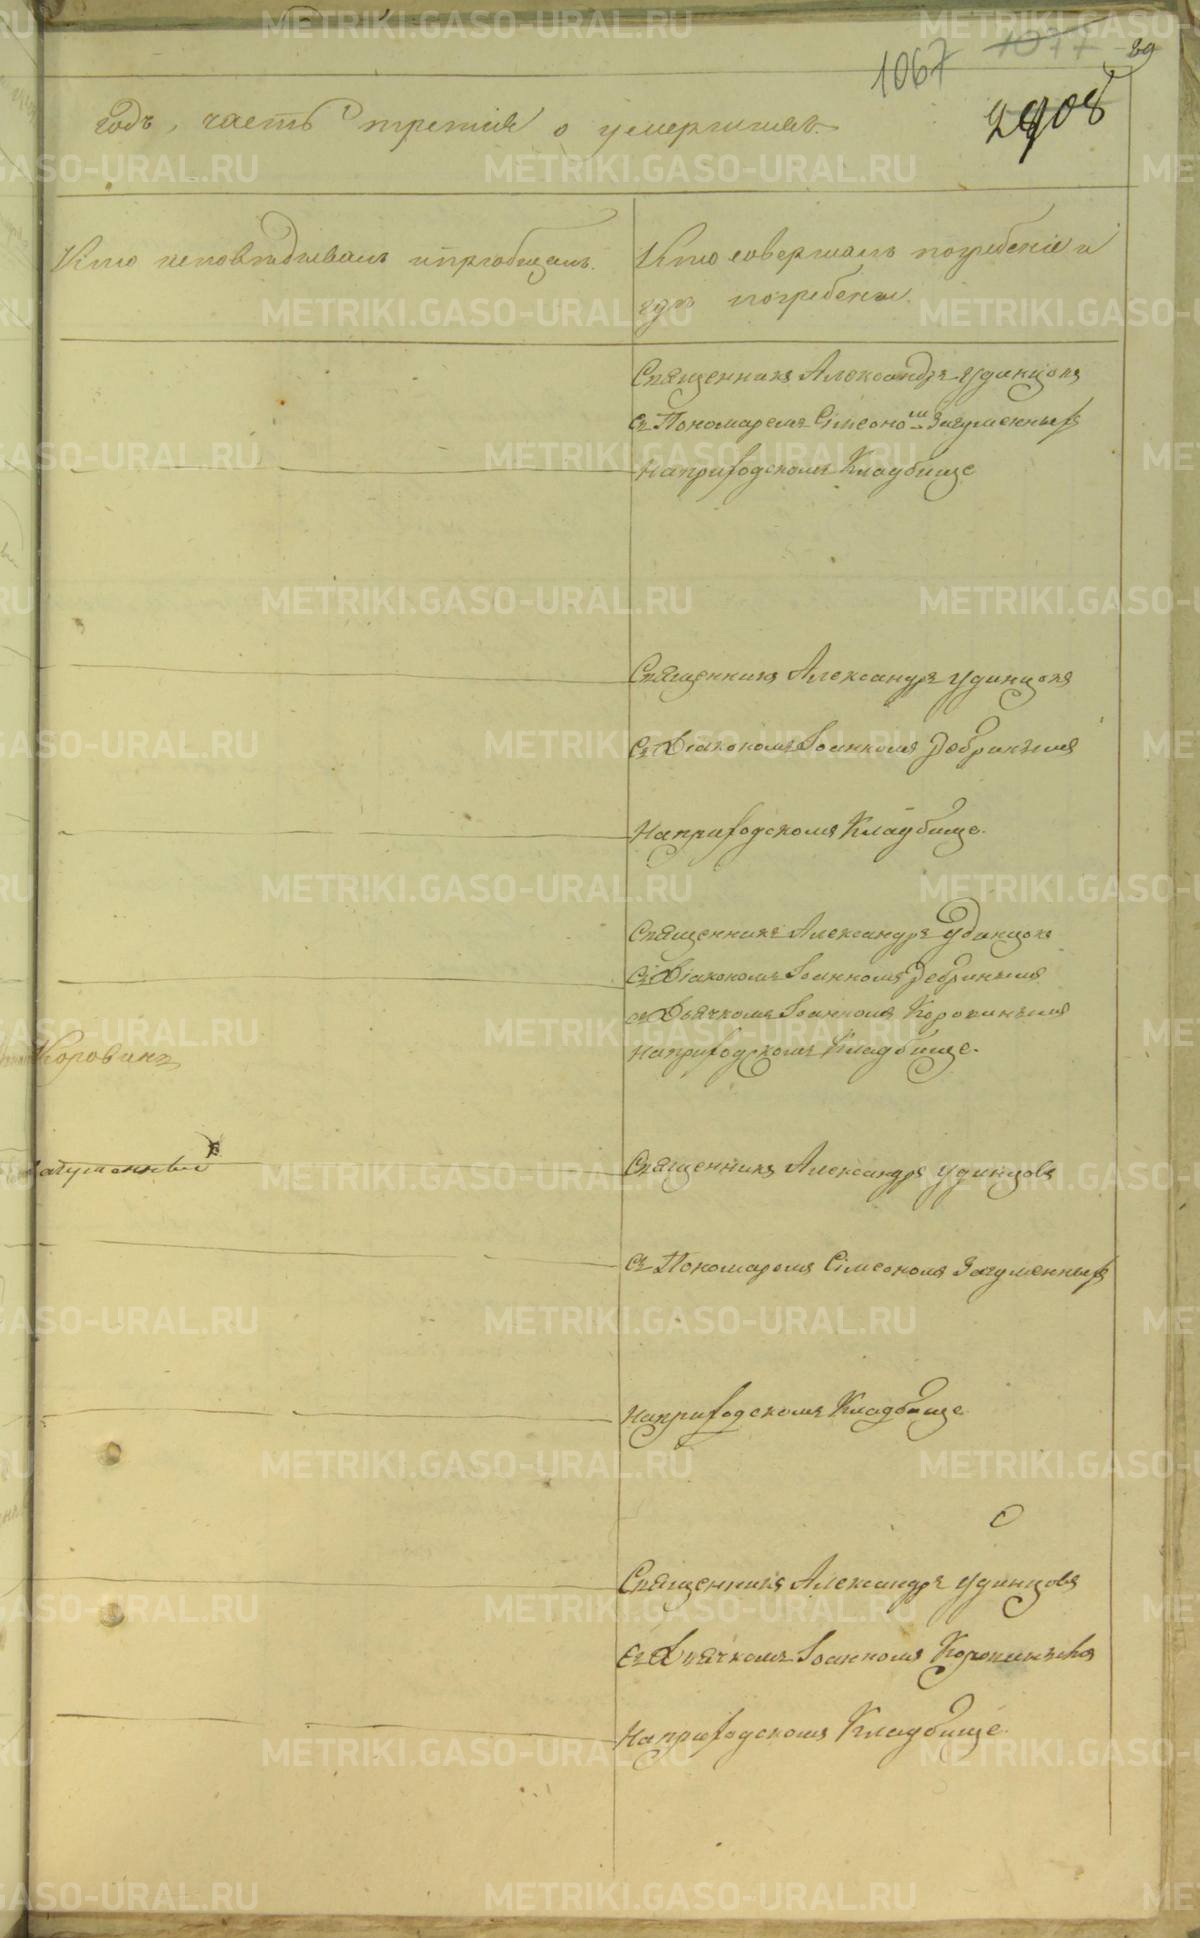 1067 1077 89
2908
годъ, часть третія о умершихъ.
Кто исповѣдывалъ и пріобщалъ.
Кто совершалъ погребеніе и
гдѣ погребены.
Священникъ Александръ Удинцовъ
съ Пономаремъ Сімеономъ Загуменныхъ
На приходскомъ Кладбище
Священникъ Александръ Удинцовъ
съ Діакономъ Іоанномъ Добрынинымъ
На приходскомъ Кладбище.
Священникъ Александръ Удинцовъ
съ Діакономъ Іоанномъ
съ Дьячкомъ Іоанномъ Коровинымъ
На приходскомъ Кладбище.
Коровинъ
Загуменныхъ
Священникъ Александръ Удинцовъ
съ Пономаремъ Сімеономъ Загуменныхъ
На приходскомъ Кладбище
Священникъ Александръ Удинцовъ
съ Дьячкомъ Іоанномъ Коровинымъ
На приходскомъ Кладбище.
METRIKI.GASO-URAL.RU